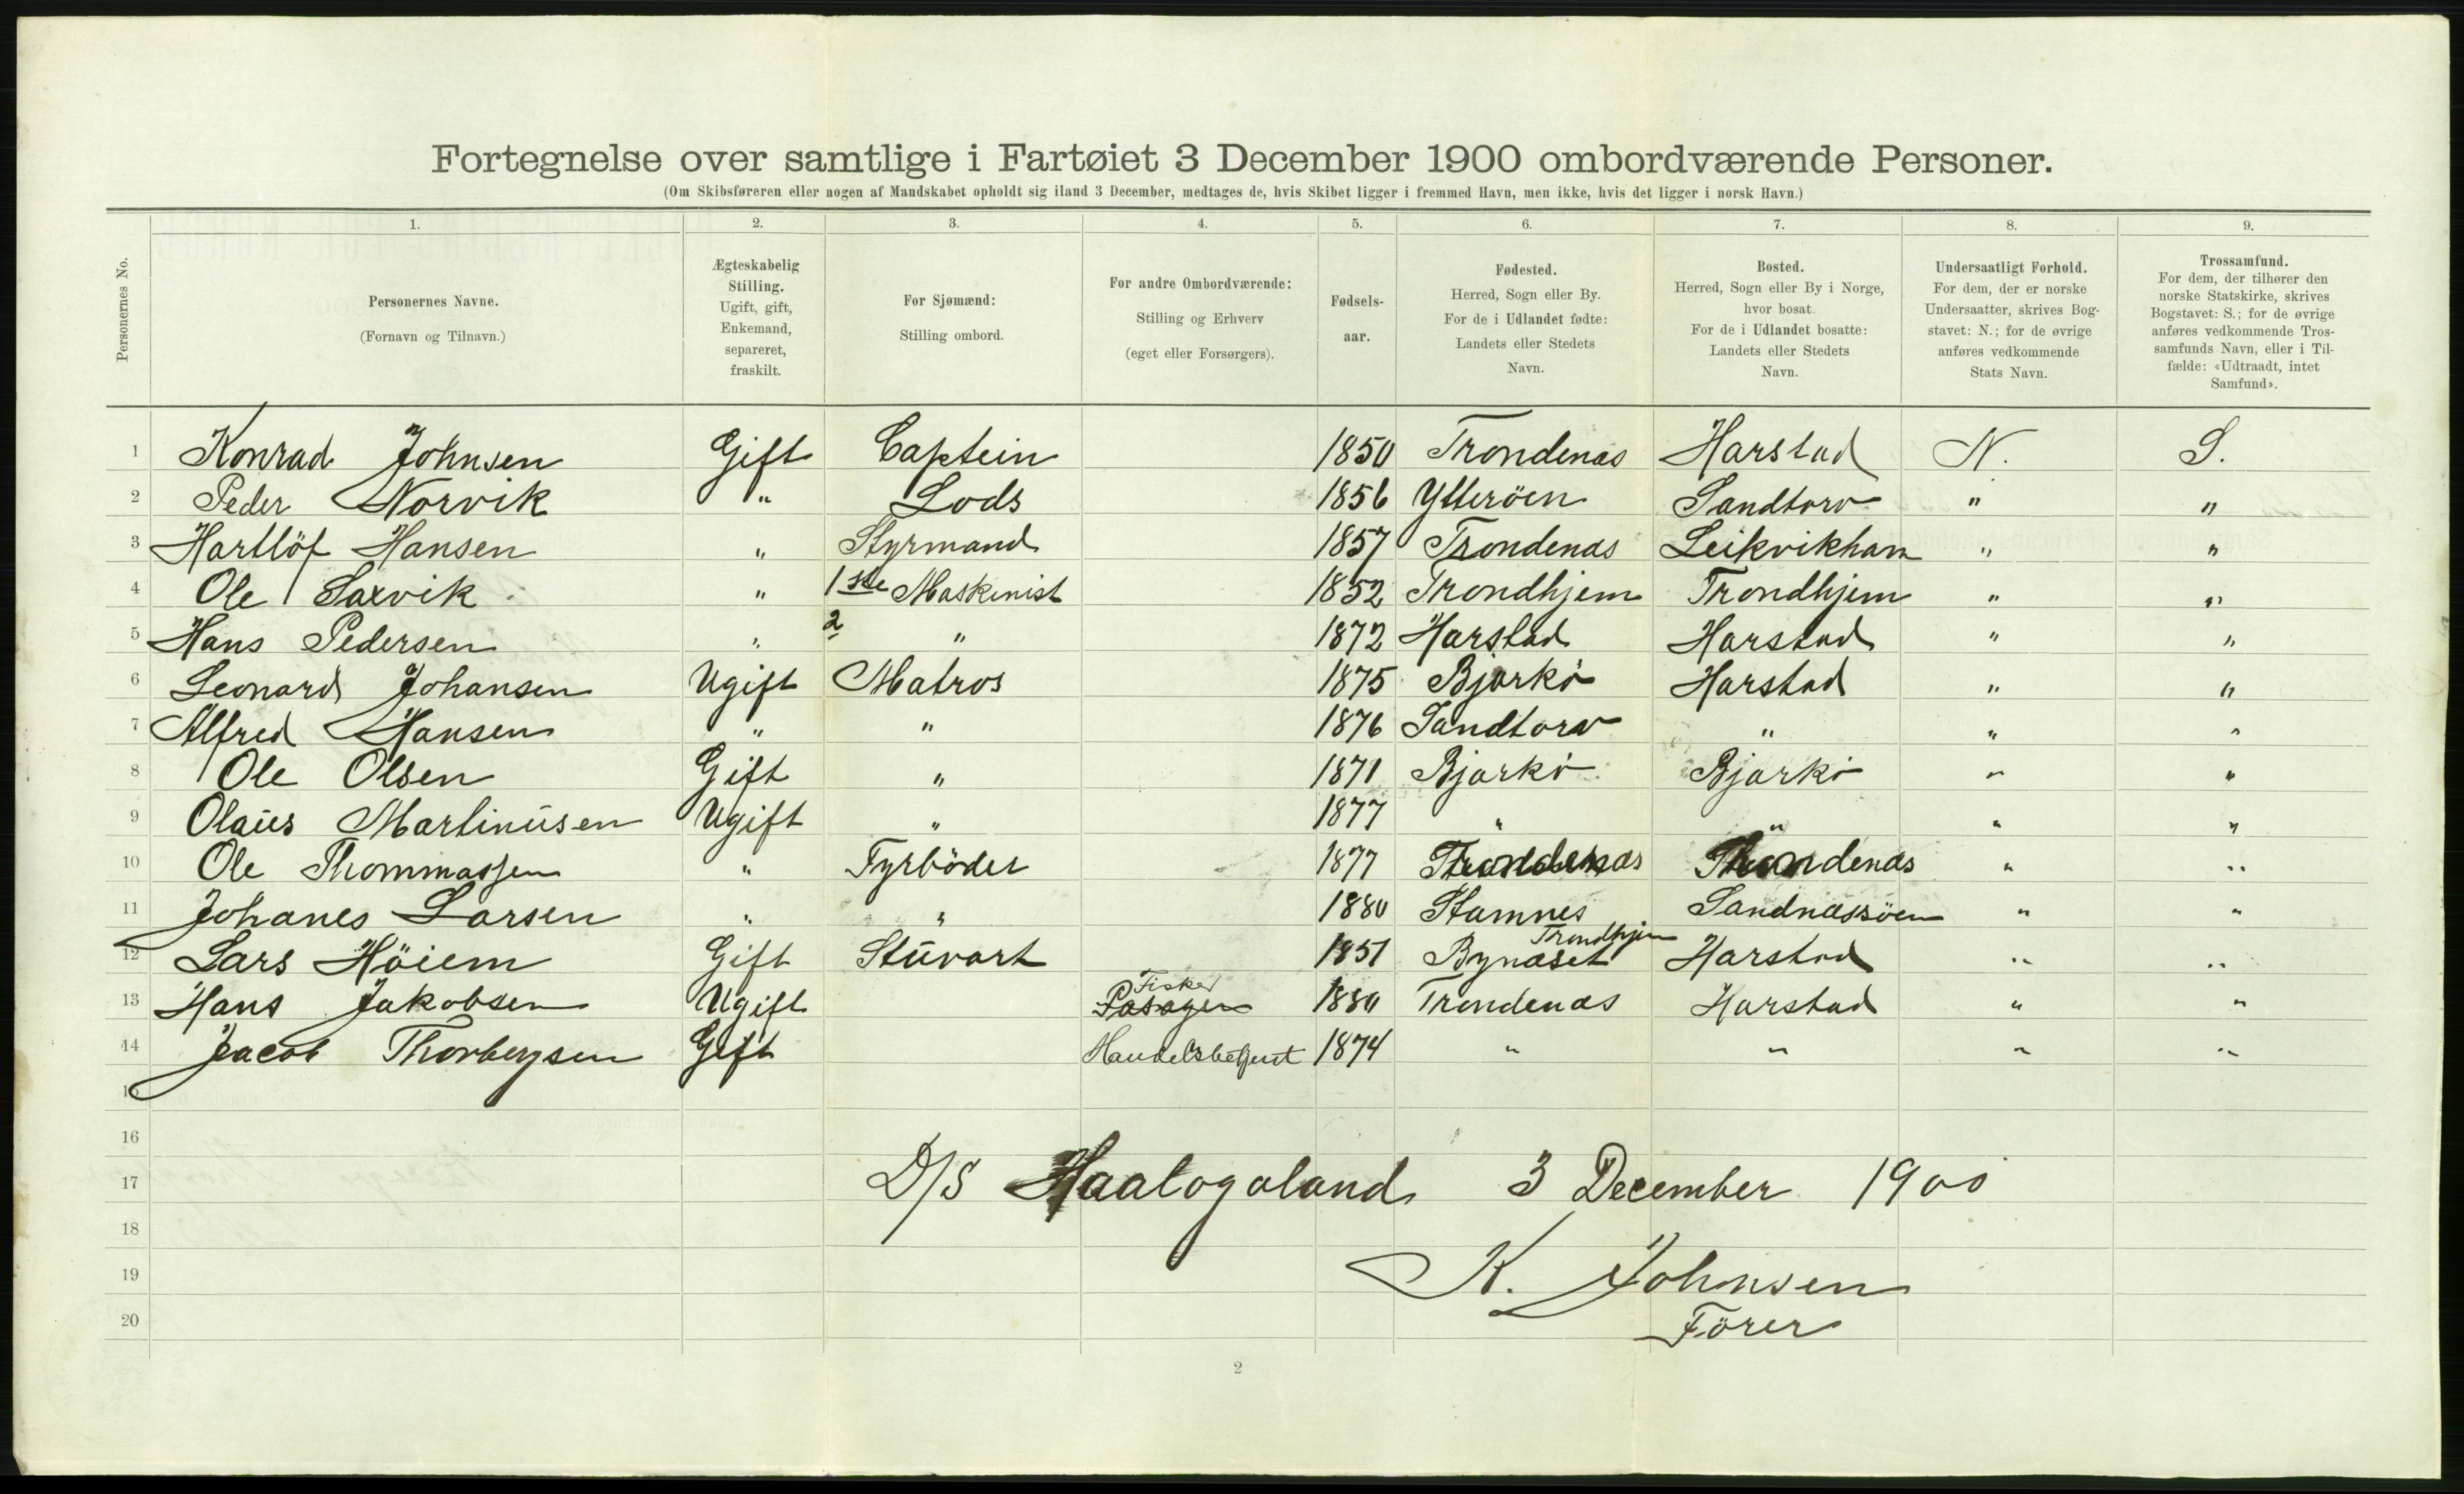 Fortegnelse over samtlige i Fartøiet 3 December 1900 ombordværende Personer.
(Om Skibsføreren eller nogen af Mandskabet opholdt sig iland 3 December, medtages de, hvis Skibet ligger i fremmed Havn, men ikke, hvis det ligger i norsk Havn.)
Personernes No.
1. Personernes Navne. (Fornavn og Tilnavn.)
2. Ægteskabelig Stilling. Ugift, gift, Enkemand, separeret, fraskilt.
3. For Sjømænd: Stilling ombord.
4. For andre Ombordværende: Stilling og Erhverv (eget eller Forsørgers).
5. Fødsels-aar.
6. Fødested. Herred, Sogn eller By. For de i Udlandet fødte: Landets eller Stedets Navn.
7. Bosted. Herred, Sogn eller By i Norge, hvor bosat. For de i Udlandet bosatte: Landets eller Stedets Navn.
8. Undersaatligt Forhold. For dem, der er norske Undersaatter, skrives Bogstavet: N.; for de øvrige anføres vedkommende Stats Navn.
9. Trossamfund. For dem, der tilhører den norske Statskirke, skrives Bogstavet: S.; for de øvrige anføres vedkommende Trossamfunds Navn, eller i Tilfælde: «Udtraadt, intet Samfund».
1 Konrad Johnsen Gift Captein 1850 Trondenæs Harstad N. S.
2 Peder Norvik " Lods 1856 Ytteröen Sandtorv " "
3 Hartlöf Hansen " Styrmand 1857 Trondenæs Leikvikham " "
4 Ole Saxvik " 1ste Maskinist 1852 Trondhjem Trondhjem " "
5 Hans Pedersen " 2 " 1872 Harstad Harstad " "
6 Leonard Johansen Ugift Matros 1875 Bjarkö Harstad " "
7 Alfred Hansen " " 1876 Sandtorv " " "
8 Ole Olsen Gift " 1871 Bjarkö Bjarkö " "
9 Olaus Martinusen Ugift " 1877 " " " "
10 Ole Thommassen " Fyrböder 1877 Trondenæs Trondenæs " "
11 Johanes Larsen " " 1880 Stamnes Sandnæssöen " "
12 Lars Höiem Gift Stuvart 1851 Bynæset Trondhjem Harstad " "
13 Hans Jakobsen Ugift Fisker Pasager 1880 Trondenæs Harstad " "
14 Jacob Thorbergsen Gift Handelsbetjent 1874 " " " "
15
16
17 D/S Haalogaland 3 December 1900
18
19 K. Johnsen
20 Förer
2